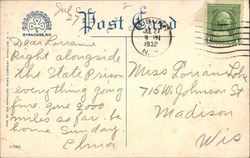 Jul 27
2
SYRACUSE, N.Y.
Post Card
JUL 27
9 PM
1932
N.Y.
Dear Lorraine
Right alongside
the State Prison
everything going
fine. gone 2000
miles so far. be
home Sunday.
Elma
Miss Lorraine
715 W. Johnson St
Madison
Wis